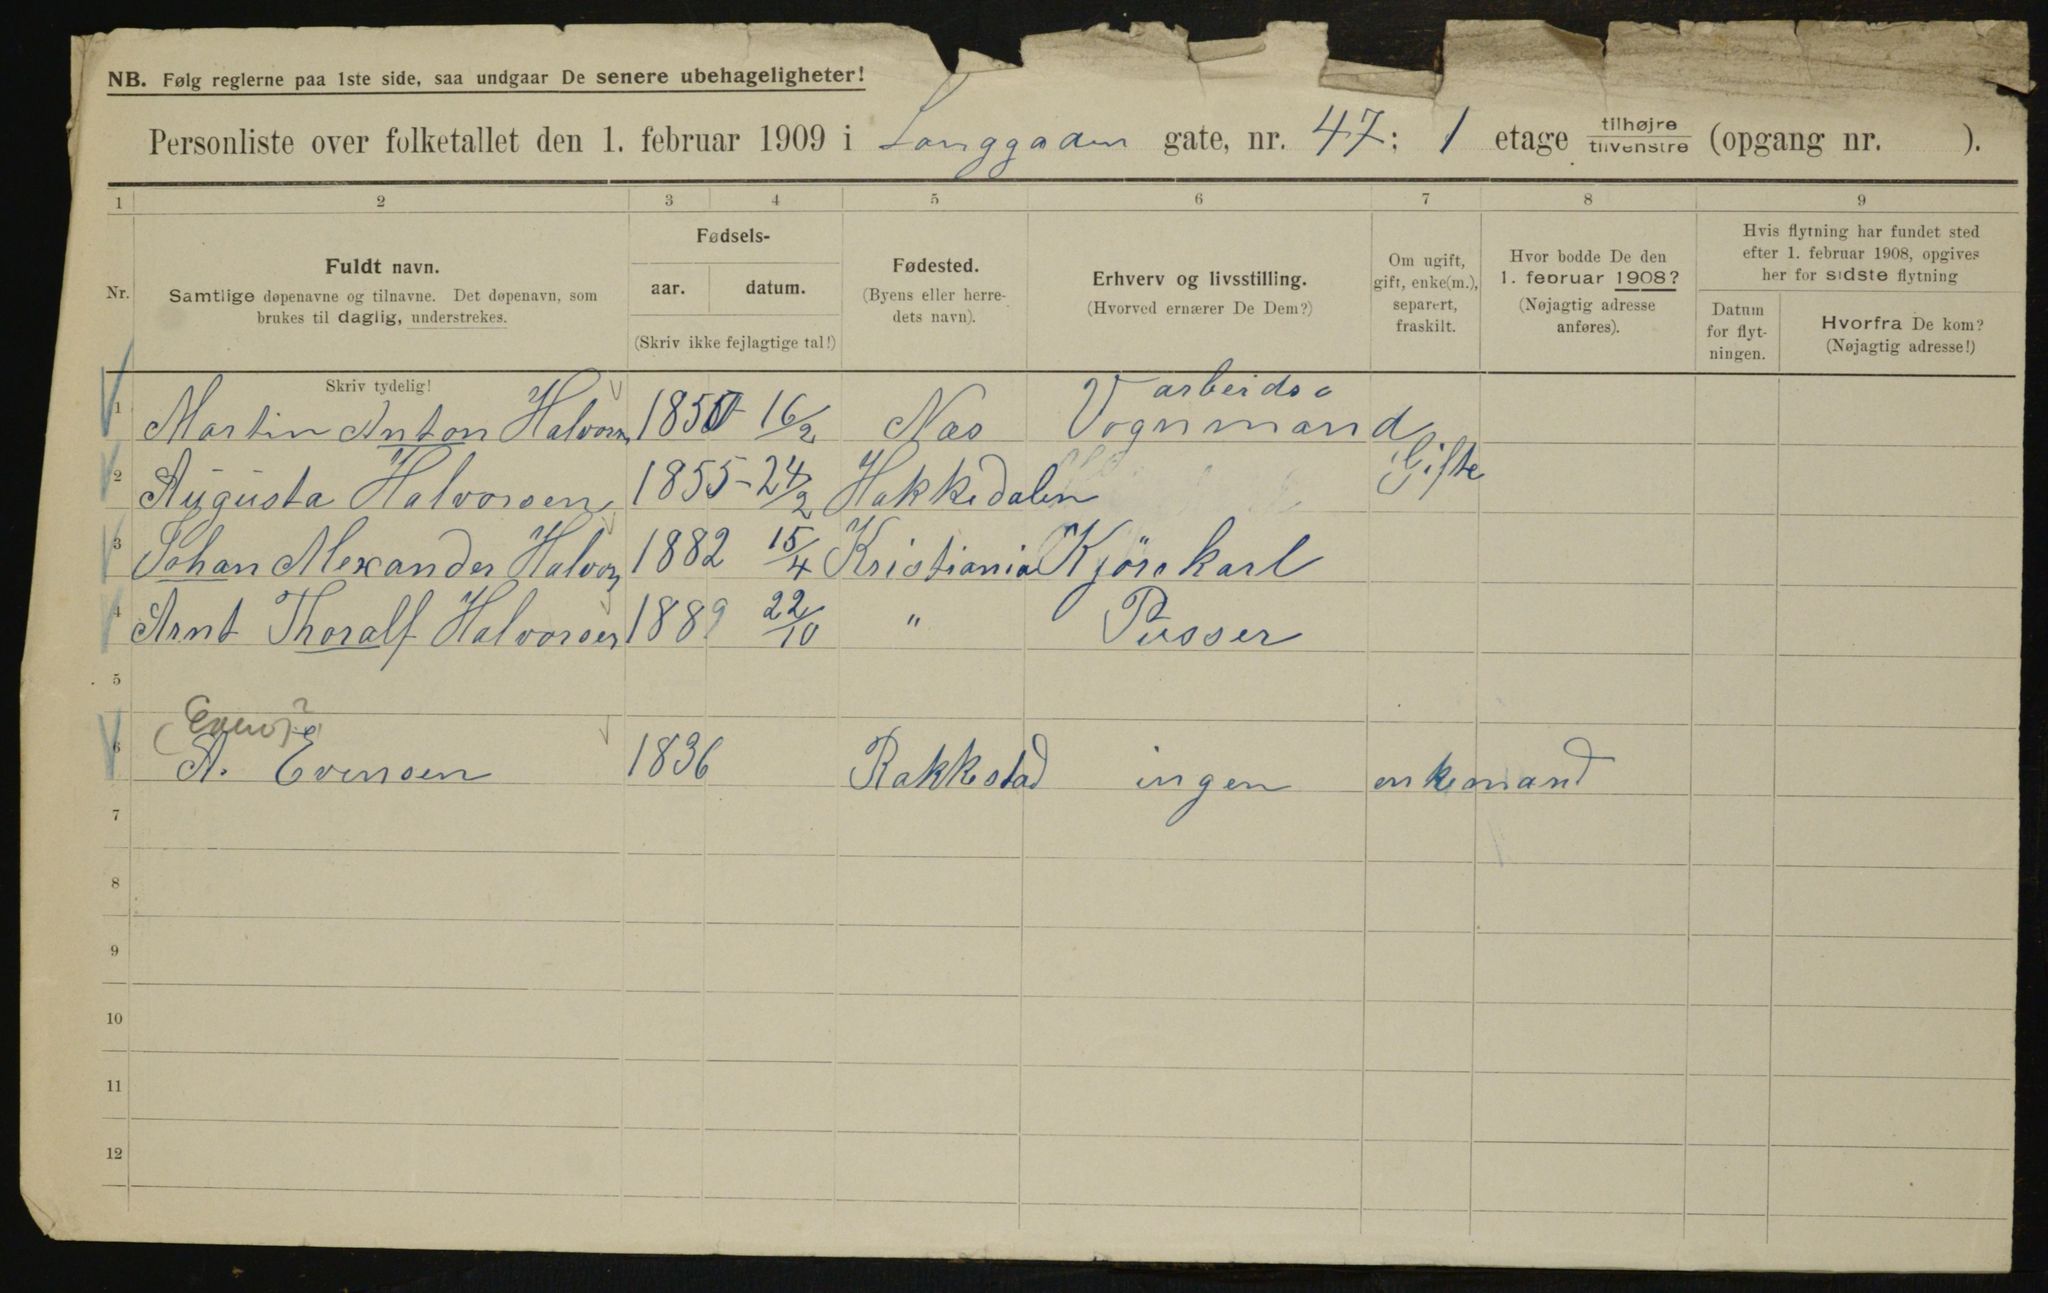 NB. Følg reglerne paa 1ste side, saa undgaar De senere ubehageligheter!
Personliste over folketallet den 1. februar 1909 i Langgaden gate, nr. 47; 1 etage tilhøjre tilvenstre (opgang nr. ).
1 2 3 4 5 6 7 8 9
Nr.
Fuldt navn.
Samtlige døpenavne og tilnavne. Det døpenavn, som
brukes til daglig, understrekes.
Skriv tydelig!
Fødsels-
aar. datum.
(Skriv ikke fejlagtige tal!)
Fødested.
(Byens eller herre-
dets navn).
Erhverv og livsstilling.
(Hvorved ernærer De Dem?)
Om ugift,
gift, enke(m.),
separert,
fraskilt.
Hvor bodde De den
1. februar 1908?
(Nøjagtig adresse
anføres).
Hvis flytning har fundet sted
efter 1. februar 1908, opgives
her for sidste flytning
Datum
for flyt-
ningen.
Hvorfra De kom?
(Nøjagtig adresse!)
arbeids
1 Martin Anton Halvorsen 1850 16/2 Næs Vognmand
2 Augusta Halvorsen 1855 - 24/2 Hakkedalen Gifte
3 Johan Alexander Halvors 1882 15/4 Kristiania Kjørekarl
4 Arnt Thoralf Halvorsen 1889 22/10 " Pusser
5
6 A. Evensen 1836 Rakkestad ingen enkemand
7
8
9
10
11
12